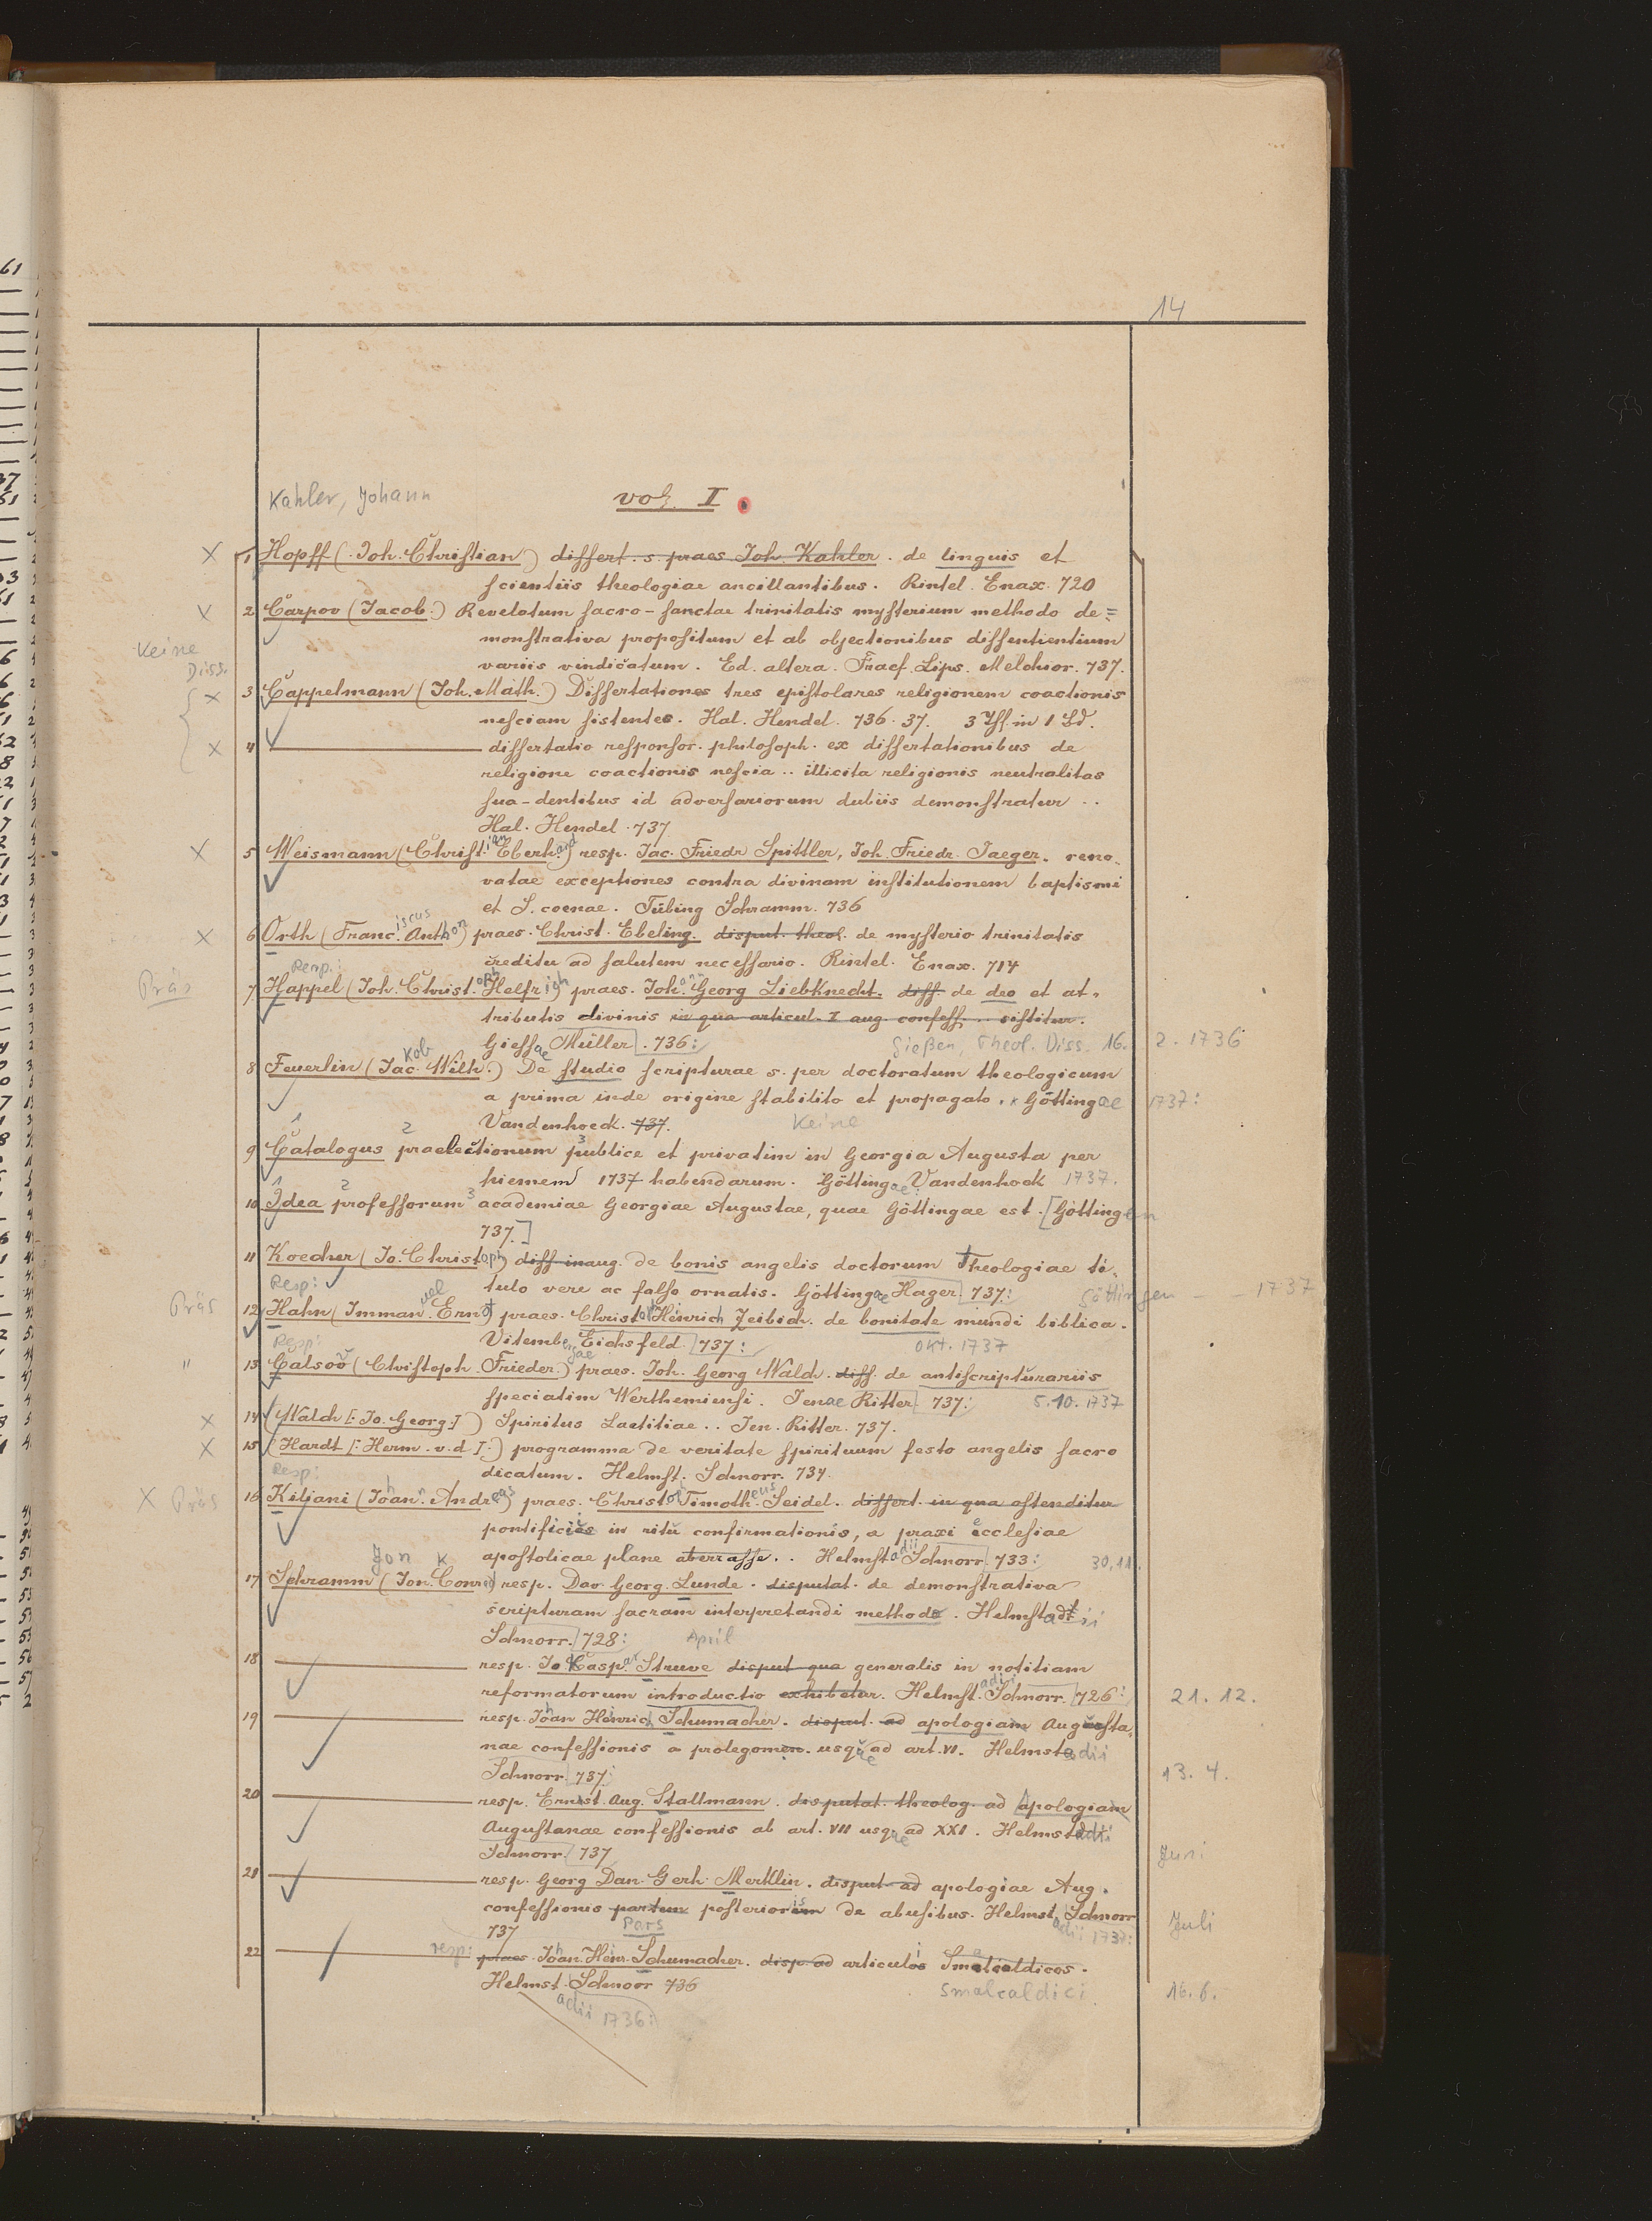 14
Kahler, Johann
vol. I.
1 Hopff (Joh. Christian) dissert. s. praes Joh. Kahler. de linguis et
scientiis theologiae ancillantibus. Rintel. Enax. 720
2 Carpov (Jacob.) Revelatum sacro-sanctae trinitatis mysterium methodo de=
monstrativa propositum et ab objectionibus dissentientium
Keine Diss.
variis vindicatum. Ed. altera. Lips. Melchior. 737.
3 Cappelmann (Joh. Math.) Dissertationes tres epistolares religionem coactionis
nesciam sistentes. Hal. Hendel. 736. 37. 3 in 1 Bd.
4 dissertatio responsor. philosoph. ex dissertationibus de
religione coactionis nescia .. illicita religionis neutralitas
sua-dentibus id adversariorum dubiis demonstratur ..
Hal. Hendel. 737
5 Weismann (Christian Eberhard) resp. Jac. Friedr Spittler, Joh. Friedr. Jaeger. reno-
vatae exceptiones contra divinam institutionem baptismi
et S. coenae. Tübing Schramm. 736
6 Orth (Franciscus Anthon) praes. Christ. Ebeling. disput. theol. de mysterio trinitatis
creditu ad salutem necessario. Rintel. Enax. 714
Resp.:
Präs
7 Happel (Joh. Christoph Helfrich) praes. Johann Georg Liebknecht. diss. de deo et at-
tributis divinis in qua articul. I aug. confess. .. sistitur.
Giessae Müller. 736: Gießen, Theol. Diss. 16. 2. 1736
8 Feuerlin (Jacob Wilh.) De studio scripturae s. per doctoratum theologicum
a prima inde origine stabilito et propagato. Göttingae 1737:
Vandenhoeck. 737. Keine
9 Catalogus praelectionum publice et privatim in Georgia Augusta per
hiemem 1737 habendarum. Göttingae: Vandenhoek 1737.
10 Idea professorum academiae Georgiae Augustae, quae Göttingae est. [Göttingen
737.]
11 Koecher (Jo. Christoph) diss. inaug. de bonis angelis doctorum Theologiae ti-
Resp:
tulo vere ac falso ornatis. Göttingae Hager 737: Göttingen - - 1737
Präs
12 Hahn (Immanuel Ernst) praes. Christoph Heinrich Zeibich. de bonitate mundi biblica.
Resp:
Vitembergae Eichsfeld 737: Okt. 1737
"
13 (Christoph Frieder.) praes. Joh. Georg Walch. diss. de antiscripturariis
speciatim Werthemiensi. Jenae Ritter 737: 5.10.1737
14 (Walch [: Jo. Georg :]) Spiritus Laetitiae .. Jen. Ritter. 737.
15 (Hardt [: Herm. v. d :]) programma de veritate spirituum festo angelis sacro
Resp:
dicatum. Helmst. Schnorr. 734.
Präs
16 Kiljani (Johann Andreas) praes. Christoph Timotheus Seidel. dissert. in qua ostenditur
pontificiis in ritu confirmationis, a praxi ecclesiae
apostolicae plane aberrasse .. Helmstadii Schnorr 733: 30.11.
Jon K
17 Schramm (Jon. Conrad) resp. Dav. Georg Lunde. disputat. de demonstrativa
scripturam sacram interpretandi methodo. Helmstadii
Schnorr. 728: April
18 resp. Jo Caspar Struve disput qua generalis in notitiam
reformatorum introductio exhibetur. Helmstadii Schnorr. 726: 21. 12.
19 resp. Johan Heinrich Schumacher. disput. ad apologiam Augusta-
nae confessionis a prolegomen. usque ad art. VI. Helmstadii
Schnorr 737: 13. 4.
20 resp. Ernst Aug. Stallmann. disputat. theolog. ad apologiam
Augustanae confessionis ab art. VII usque ad XXI. Helmstadii
Schnorr 737 Juni
21 resp. Georg Dan. Gerh. Merklin. disput. ad apologiae Aug.
confessionis partem posterioris de abusibus. Helmst. Schnorr
737 Pars adii 1737: Juli
22 resp: praes. Johan. Heinr. Schumacher. disp. ad articulos Smalcaldicos.
Helmst. Schnorr 736 Smalcaldici 16. 6.
adii 1736: